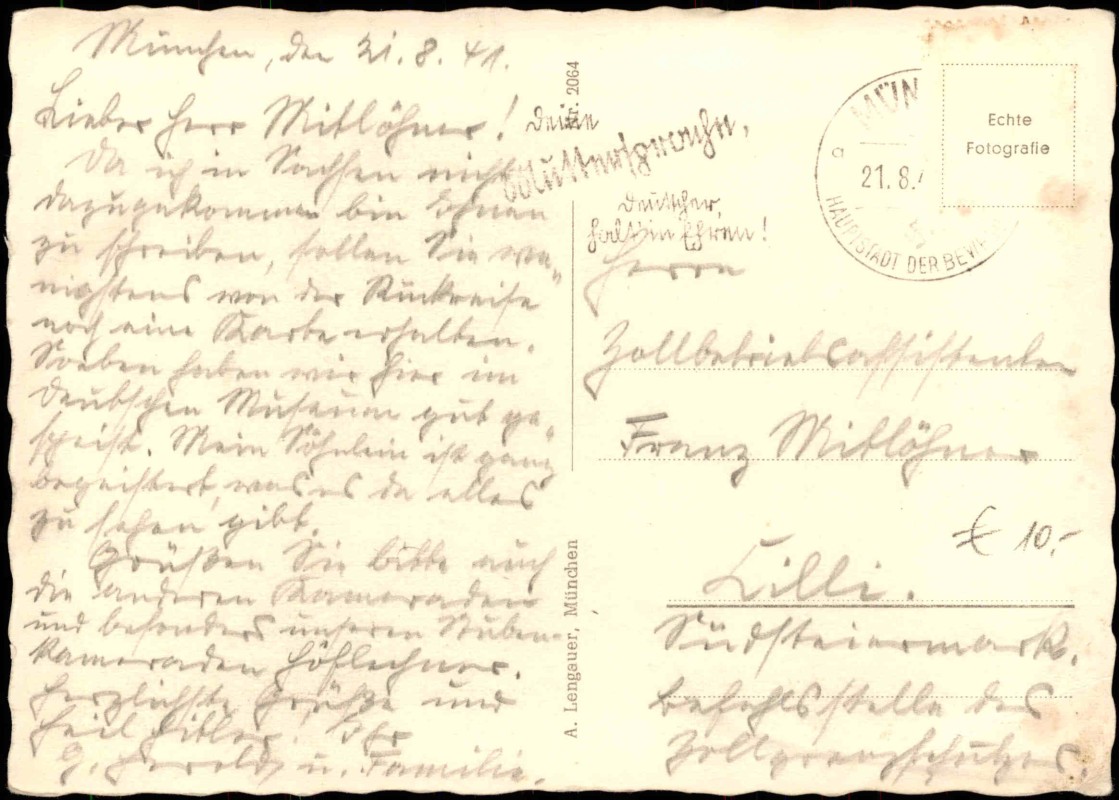 München, den 21.8.41.
Lieber Herr Mitlöhner!
Da ich in Sachsen nicht
dazugekommen bin Ihnen
zu schreiben, sollen Sie we-
nigstens von der Rückreise
noch eine Karte erhalten.
Soeben haben wir hier im
Deutschen Museum gut ge-
speist. Mein Söhnlein ist ganz
begeistert, was es da alles
zu sehen gibt.
Grüßen Sie bitte auch
die anderen Kameraden
und besonders unseren Stuben-
kameraden Höflechner.
Herzlichste Grüße und
Heil Hitler! Ihr
u. Familie.
Nr. 2064
A. Lengauer, München
Deine
Muttersprache,
Deutscher,
halt in Ehren!
MÜN
a
21.8.4
HAUPTSTADT DER BEWE
Echte
Fotografie
Herrn
Zollbetriebsassistenten
Franz Mitlöhner
€ 10.-
Lilli.
Südsteiermark.
Befehlsstelle des
Zollgrenzschutzes.